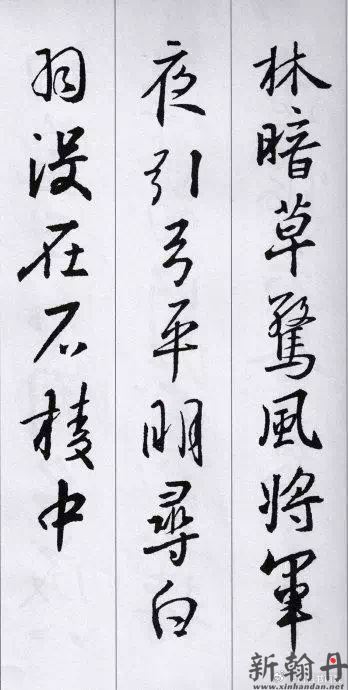 林暗草驚風將軍
夜引弓平明尋白
羽沒在石棱中
新翰丹
www.xinhandan.net